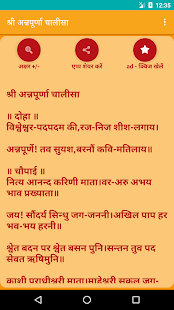 12:35
श्री अन्नपूर्णा चालीसा
अक्षर +/-
एप्प शेयर करें
ad - क्लिक खेले
श्री अन्नपूर्णा चालीसा
॥ दोहा ॥
विश्वेश्वर-पदपदम की,रज-निज शीश-लगाय।
अन्नपूर्णे! तव सुयश,बरनौं कवि-मतिलाय॥
॥ चौपाई ॥
नित्य आनन्द करिणी माता।वर-अरु अभय
भाव प्रख्याता॥
जय! सौंदर्य सिन्धु जग-जननी।अखिल पाप हर
भव-भय हरनी॥
श्वेत बदन पर श्वेत बसन पुनि।सन्तन तुव पद
सेवत ऋषिमुनि॥
काशी पुराधीश्वरी माता।माहेश्वरी सकल जग-